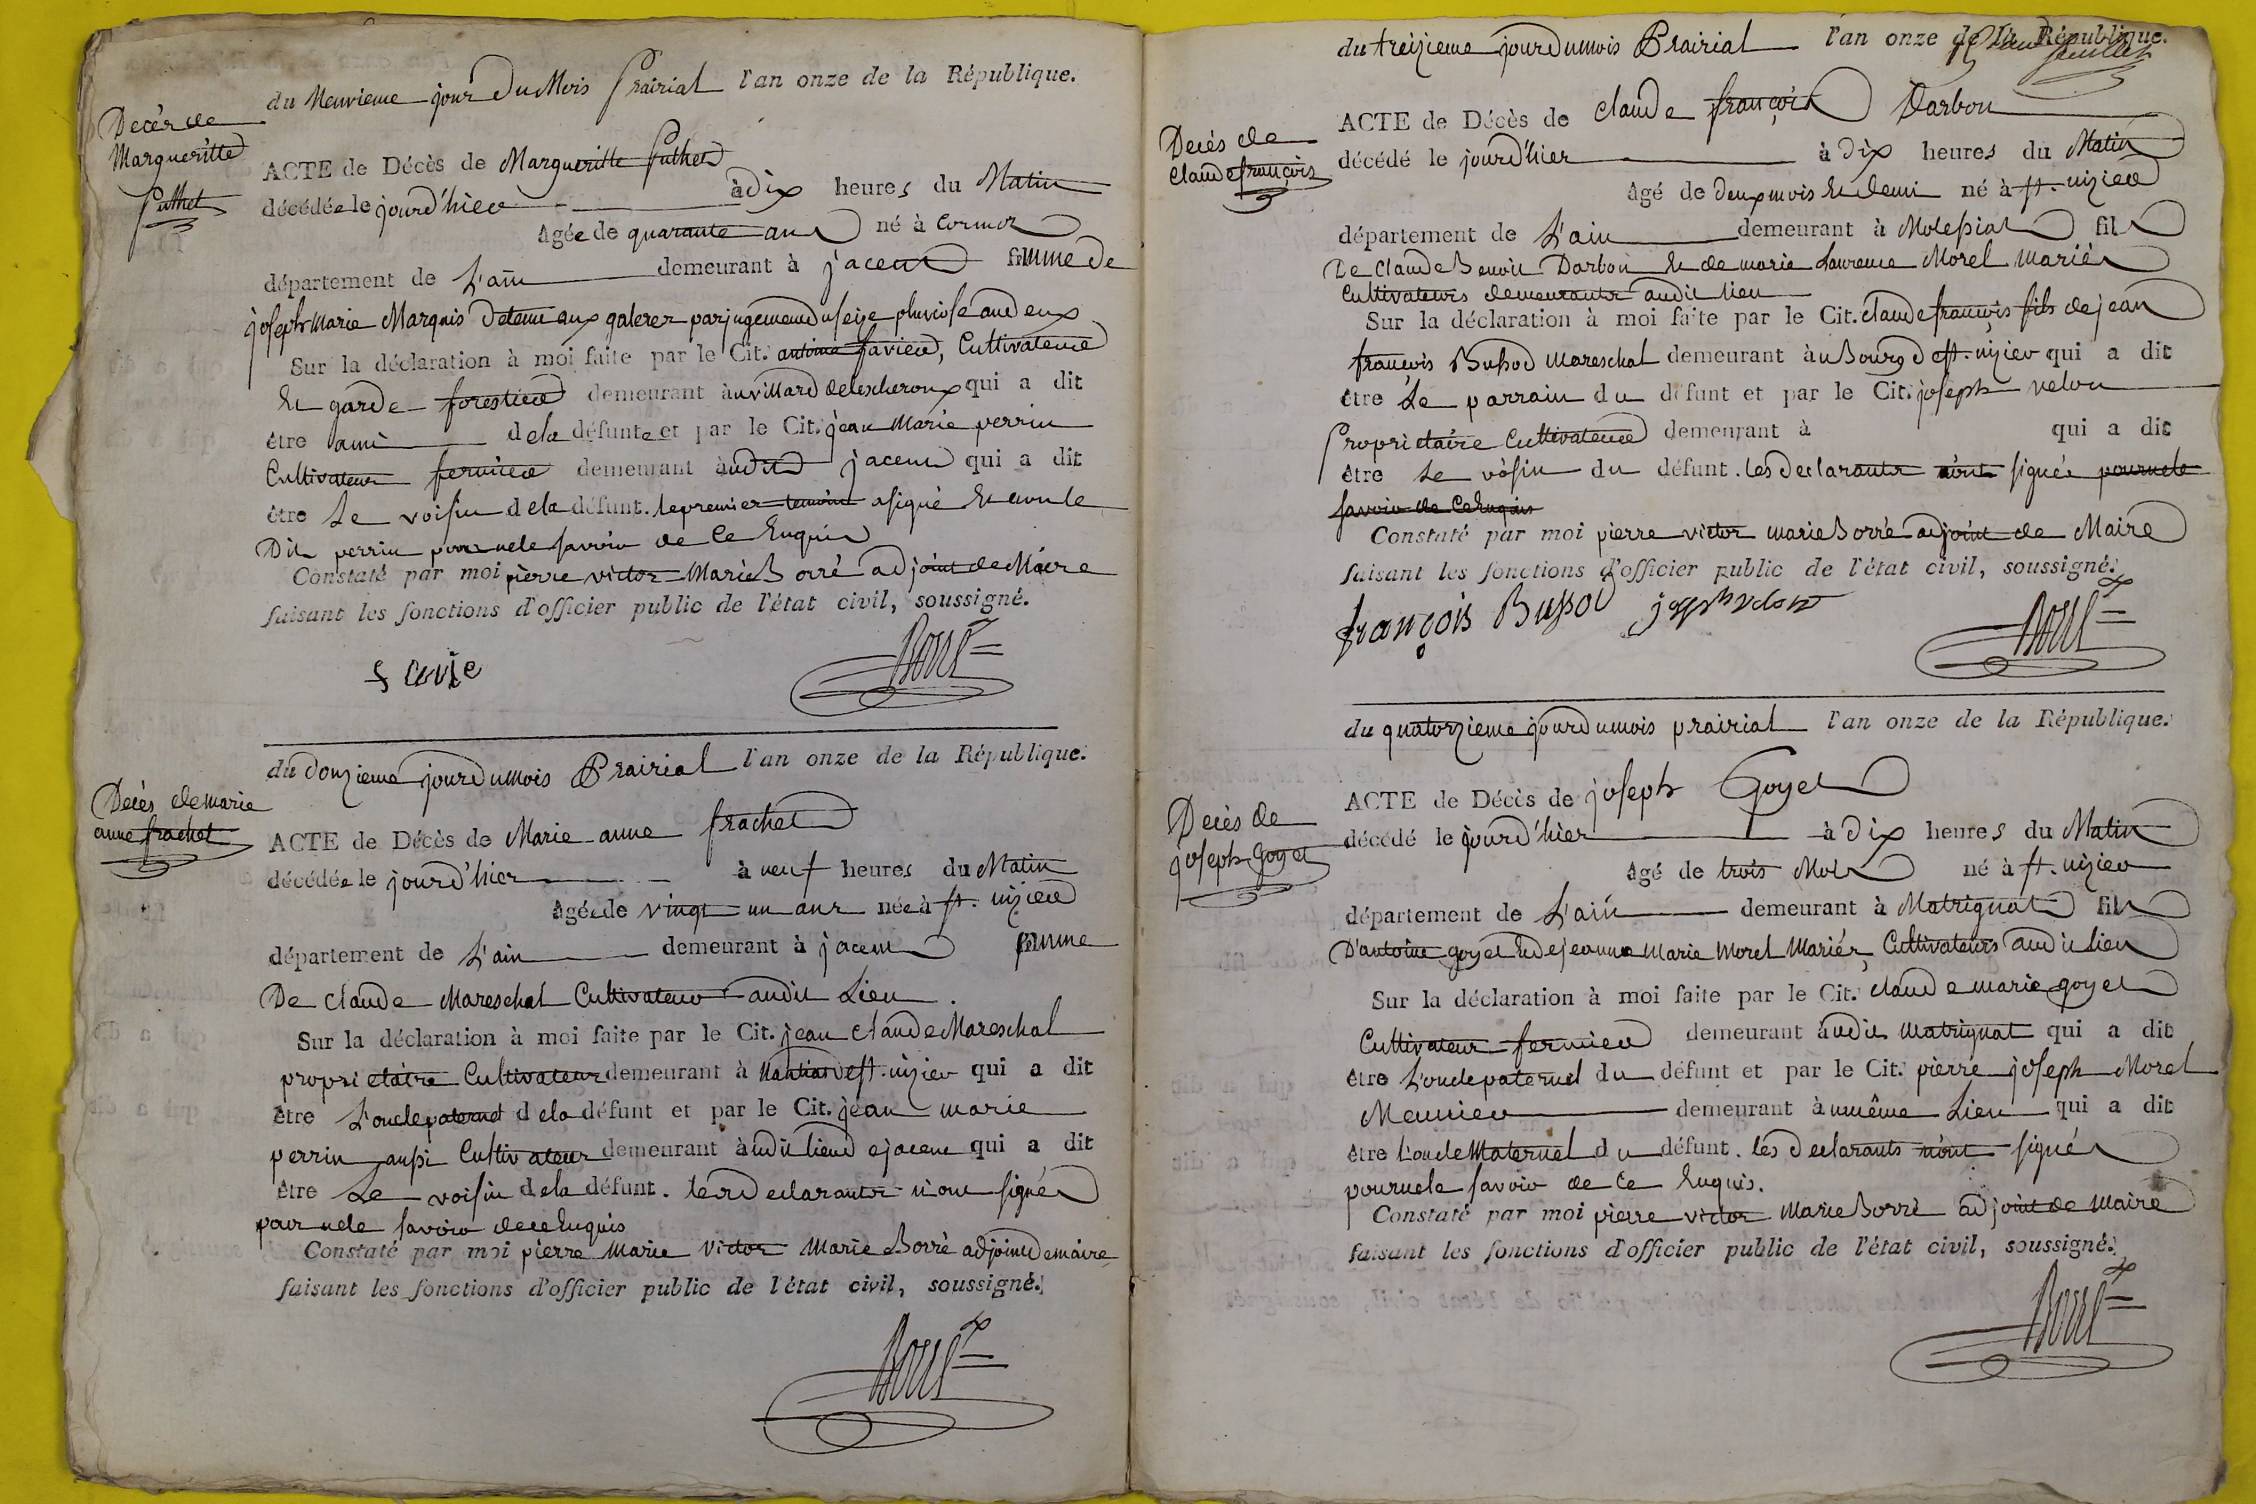 du Neuvieme jour Du Mois Prairial l'an onze de la République.
Decés de
Margueritte
Puthet
ACTE de Décès de Margueritte Puthet
décédée le jourd'hier à dix heures du Matin
âgée de quarante ans né à Cormoz
département de L'ain demeurant à jacent femme de
joseph Marie Marquis Detenu aux galeres par jugement du seize pluviose an deux
Sur la déclaration à moi faite par le Cit. antoine favier, Cultivateur
Et garde forestier demeurant au villard de lescheroux qui a dit
être ami de la défunte et par le Cit. jean Marie perrin
Cultivateur fermier demeurant audit jacent qui a dit
être Le voisin de la défunt. le premier temoin a signé Et non le
Dit perrin pour ne le savoir de Ce Enquis
Constaté par moi pierre victor Marie Borré adjoint de Maire
faisant les fonctions d'officier public de l'état civil, soussigné.
Borré
du Douzieme jour du Mois Prairial l'an onze de la République.
Decès de marie
anne frachet
ACTE de Décès de Marie anne frachet
décédée le jourd'hier à neuf heures du Matin
âgée de vingt un ans née à st. nizier
département de L'ain demeurant à jacent femme
De claude Mareschal Cultivateur audit Lieu.
Sur la déclaration à moi faite par le Cit. jean claude Mareschal
proprietaire Cultivateur demeurant à st. nizier qui a dit
être L'oncle paternel de la défunt et par le Cit. jean marie
perrin aussi Cultivateur demeurant audit lieu de jacent qui a dit
être Le voisin de la défunt. les declarants n'ont signés
pour ne le savoir de ce Enquis
Constaté par moi pierre Marie victor Marie Borré adjoint de maire
faisant les fonctions d'officier public de l'état civil, soussigné.
Borré
du treizieme jour du mois Prairial l'an onze de la République.
feuillet
Decès de
Claude françois
ACTE de Décès de Claude françois Darbon
décédé le jourd'hier à dix heures du Matin
âgé de deux mois Et demi né à st. nizier
département de L'ain demeurant à Molepiat fils
De Claude Benoit Darbon Et de marie Laurence Morel mariés
Cultivateurs demeurants audit lieu
Sur la déclaration à moi faite par le Cit. claude françois fils de jean
françois Bussod mareschal demeurant au Bourg de st. nizier qui a dit
être Le parrain du défunt et par le Cit. joseph velon
Proprietaire Cultivateur demeurant à qui a dit
être Le voisin du défunt. les declarants ont signés pour ne le
savoir de Ce Enquis
Constaté par moi pierre victor marie Borré adjoint de Maire
faisant les fonctions d'officier public de l'état civil, soussigné.
françois Bussod joseph velon Borré
du quatorzieme jour du mois prairial l'an onze de la République.
Decès de
joseph Goyet
ACTE de Décès de joseph Goyet
décédé le jourd'hier à dix heures du Matin
âgé de trois Mois né à st. nizier
département de L'ain demeurant à Matrignat fils
D'antoine goyet Et de jeanne Marie Morel Mariés, Cultivateurs audit Lieu
Sur la déclaration à moi faite par le Cit. claude marie goyet
Cultivateur fermier demeurant audit matrignat qui a dit
être L'oncle paternel du défunt et par le Cit. pierre joseph Morel
Meunier demeurant au même Lieu qui a dit
être L'oncle Maternel du défunt. les declarants n'ont signés
pour ne le savoir de Ce Enquis.
Constaté par moi pierre victor Marie Borré adjoint de maire
faisant les fonctions d'officier public de l'état civil, soussigné.
Borré